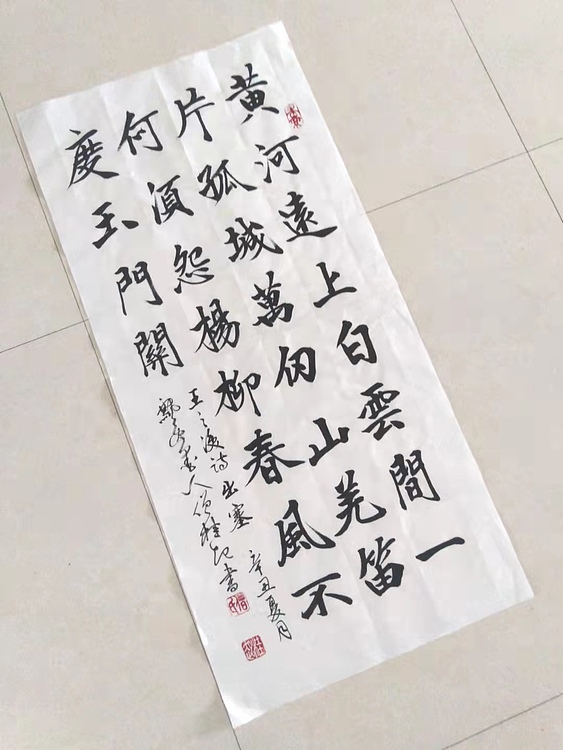 黄河遠上白雲間一
片孤城萬仞山羌笛
何須怨楊柳春風不
度玉門關
王之渙詩出塞 辛丑夏月
人 書